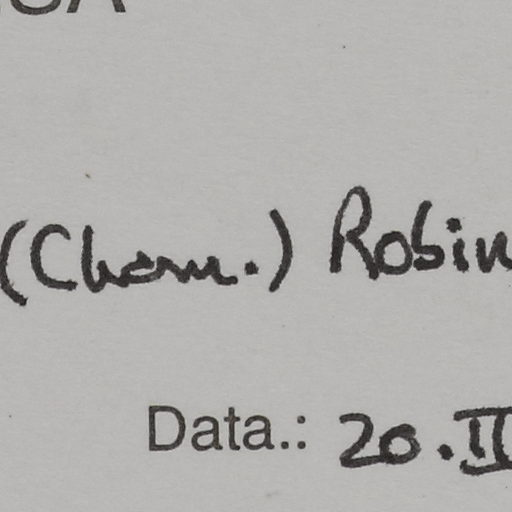 (Cham.) Robin
Data.: 20.II